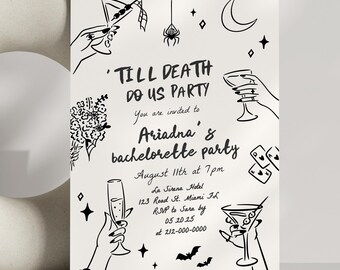 'TILL DEATH
DO US PARTY
You are invited to
Ariadna's
bachelorette party
August 11th at 7pm
La Sirena Hotel
123 Road St. Miami FL
RSVP to Sara by
05.20.25
at 212-000-0000